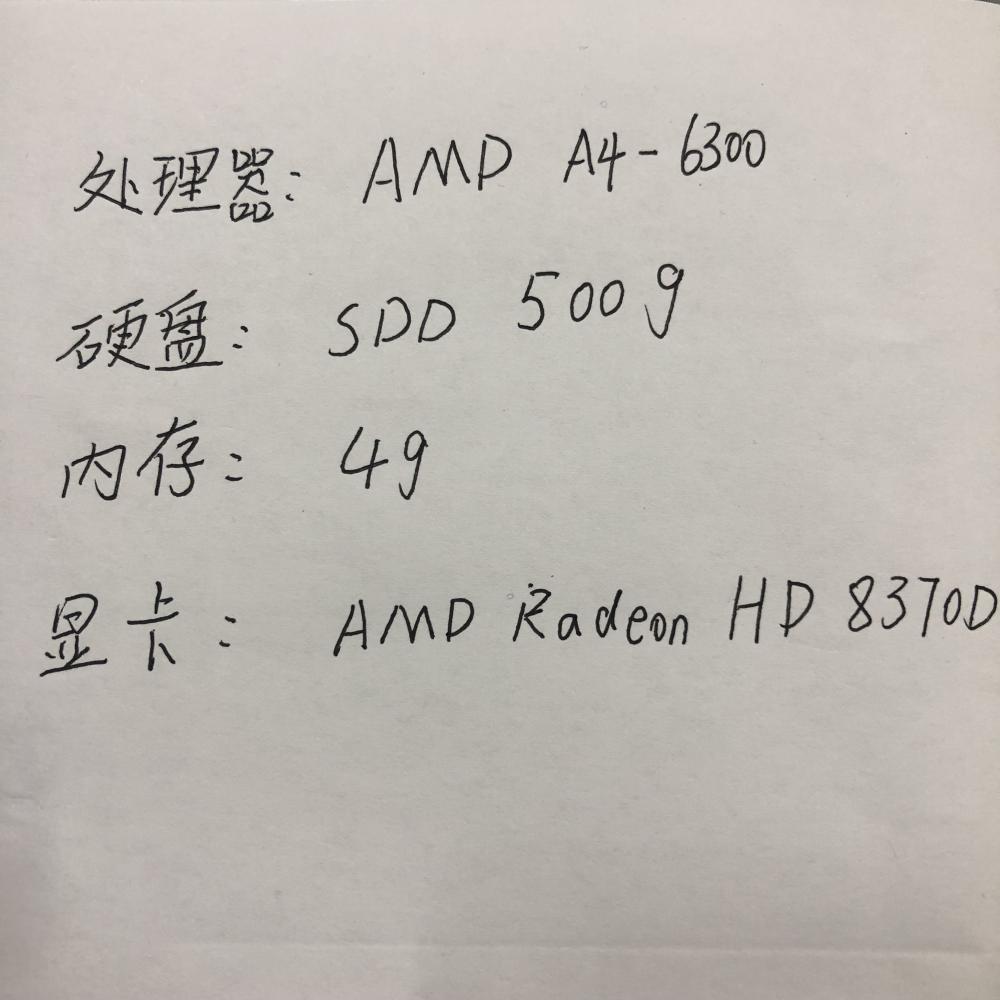 处理器: AMD A4-6300
硬盘: SDD 500g
内存: 4g
显卡: AMD Radeon HD 8370D